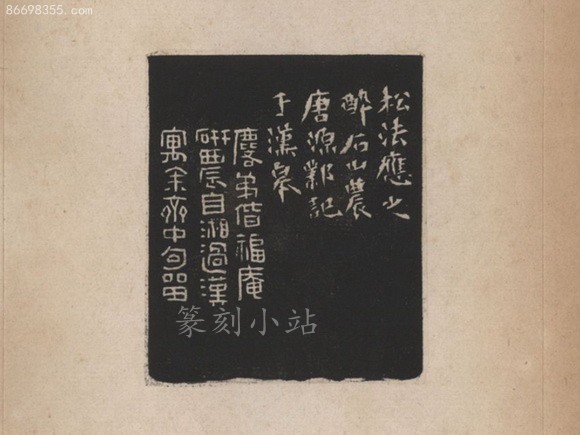 松法應之
醉石山農
唐源鄴記
于漢皋
弟偕福庵
辰自湘過漢
寓余齋中句留
篆刻小站
86698355.com